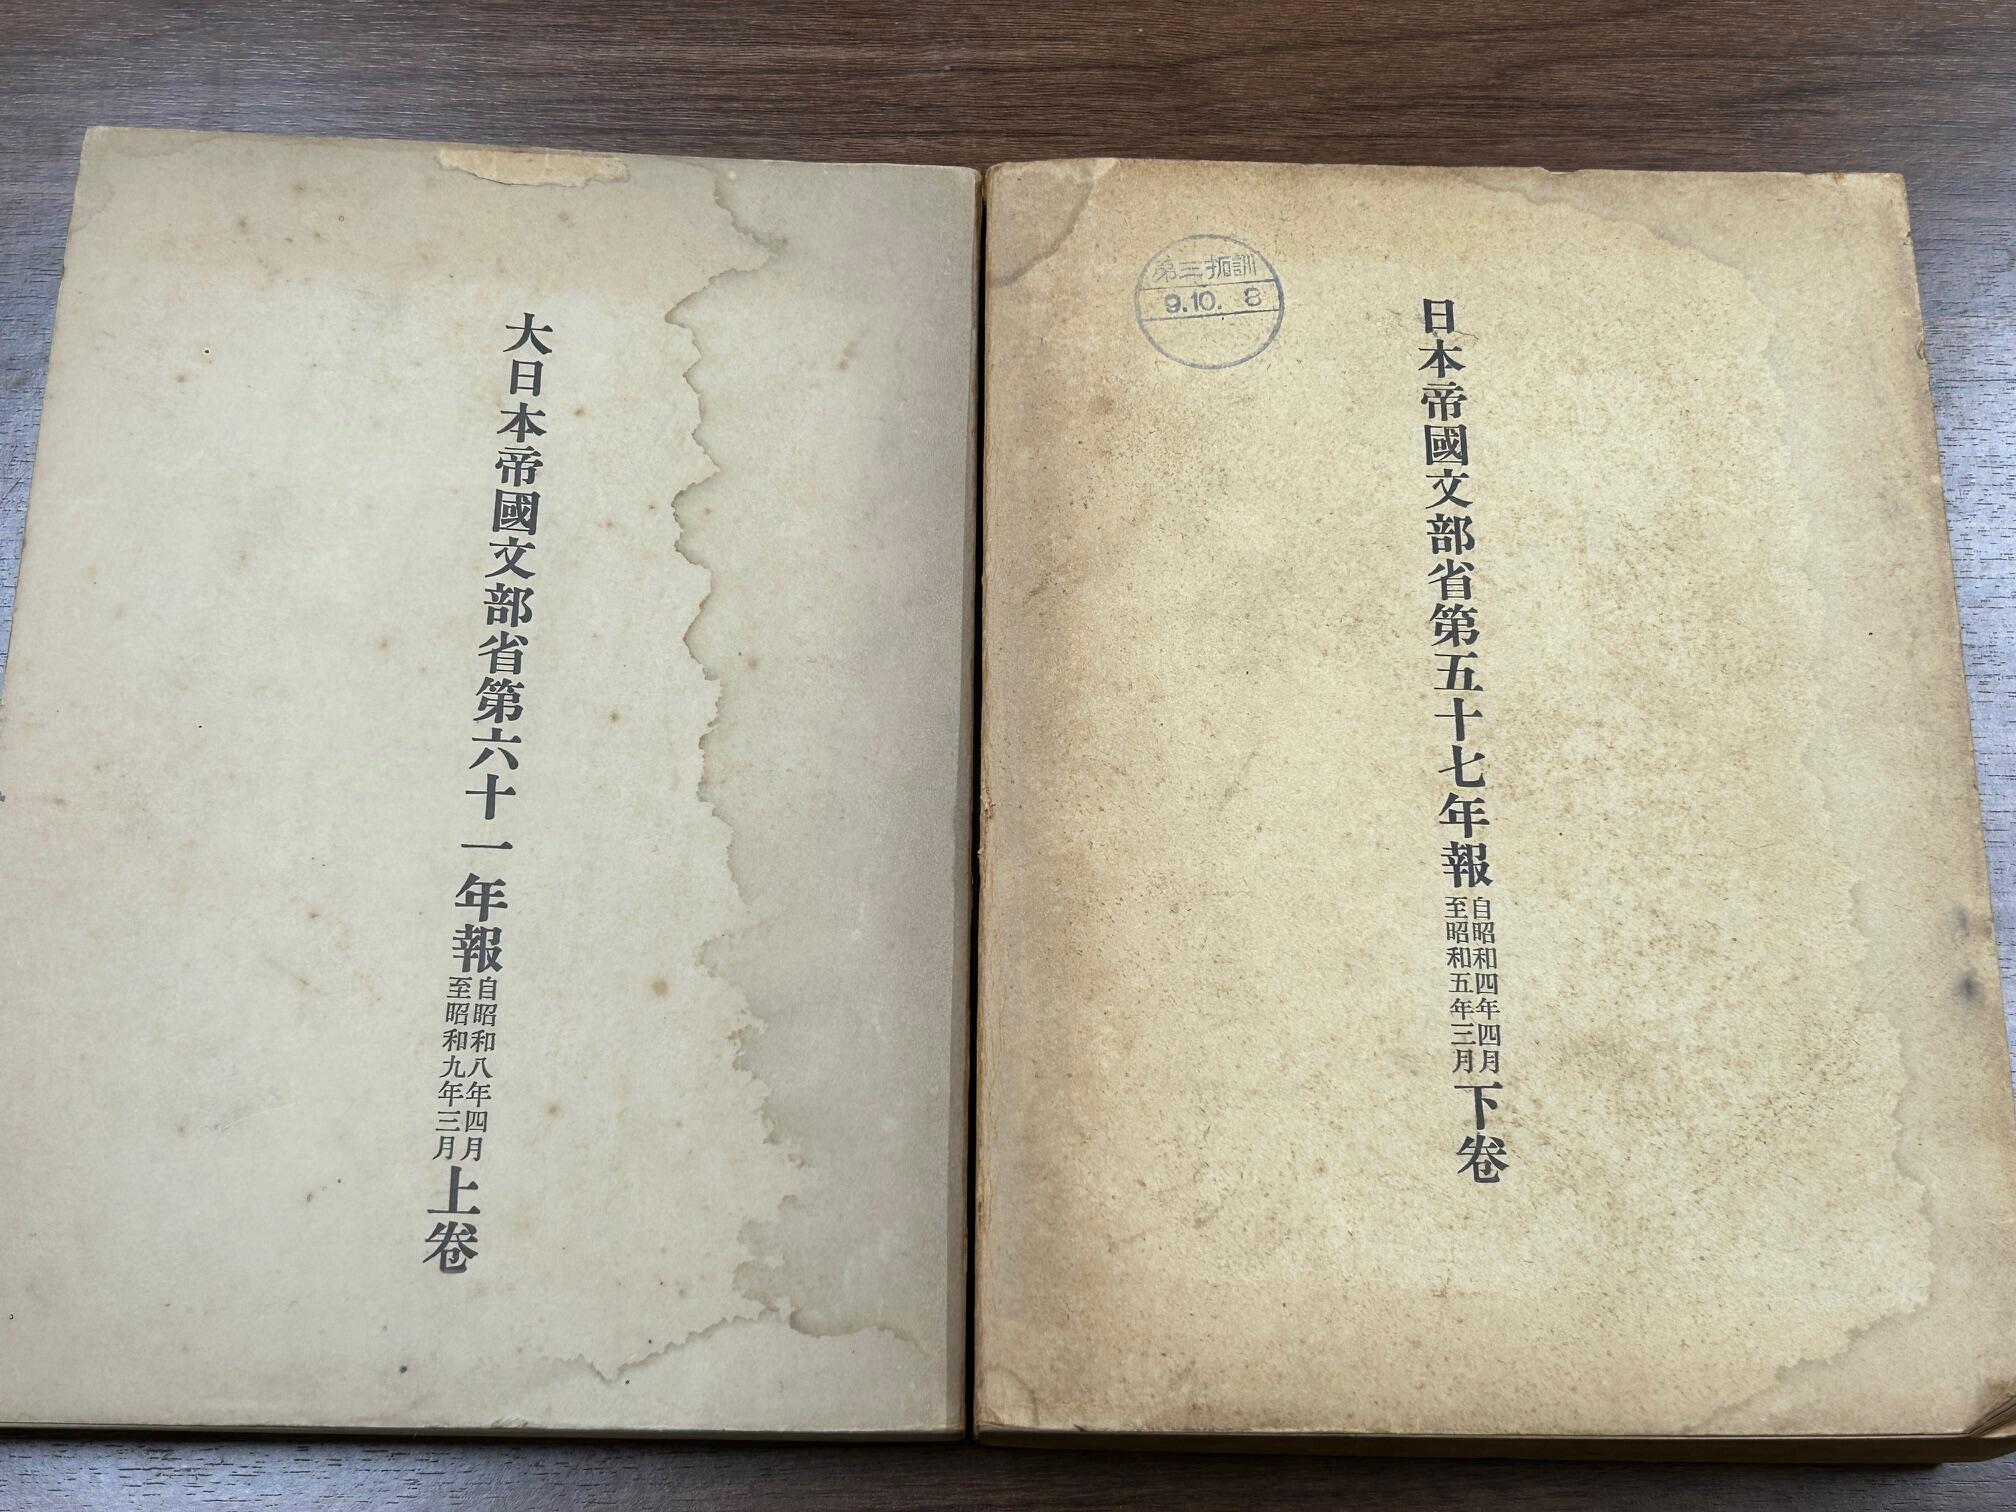 大日本帝國文部省第六十一年報
自昭和八年四月
至昭和九年三月
上卷
第三拓訓
9.10.8
日本帝國文部省第五十七年報
自昭和四年四月
至昭和五年三月
下卷